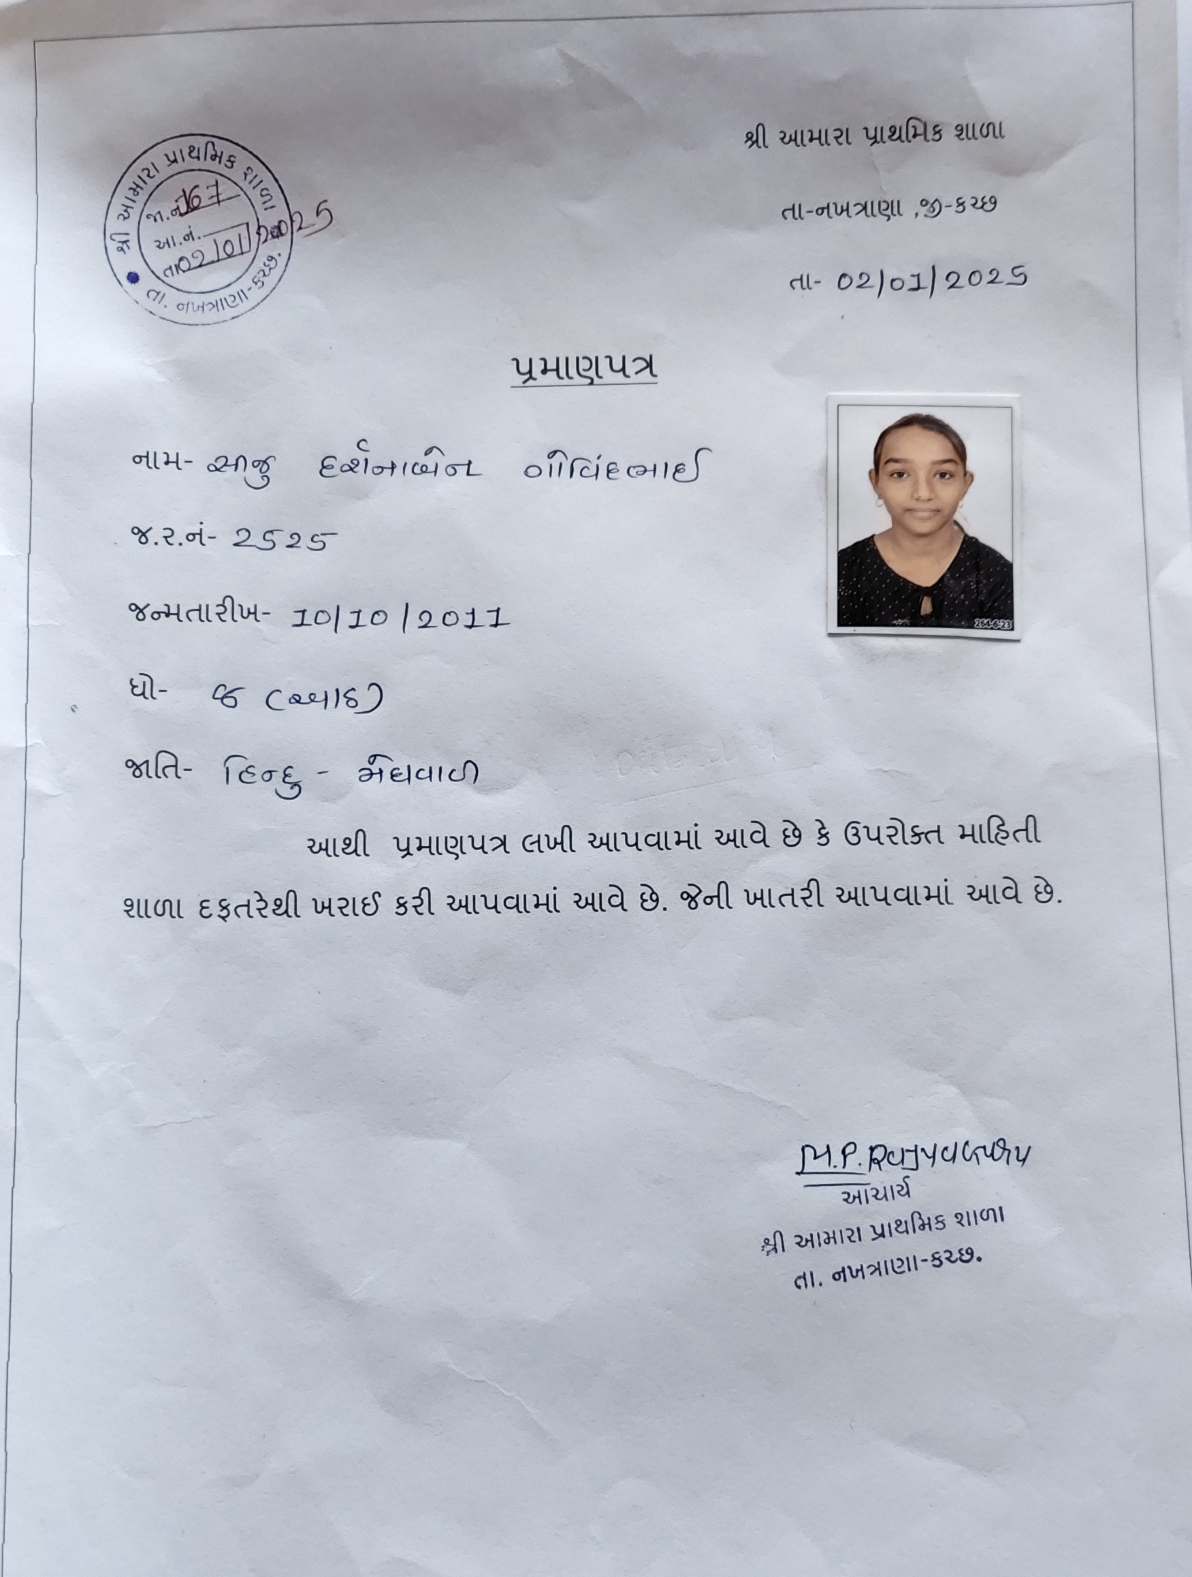 શ્રી આમારા પ્રાથમિક શાળા
જા.નં. 167
આ.નં.
તા. 02/01/2025
તા. નખત્રાણા-કચ્છ.
શ્રી આમારા પ્રાથમિક શાળા
તા-નખત્રાણા ,જી-કચ્છ
તા- 02/01/2025
પ્રમાણપત્ર
નામ- સીજુ દર્શનાબેન ગોવિંદભાઈ
જ.ર.નં- 2525
જન્મતારીખ- 10/10/2011
ધો- ૮ (આઠ)
જાતિ- હિન્દુ - મેઘવાળ
આથી પ્રમાણપત્ર લખી આપવામાં આવે છે કે ઉપરોક્ત માહિતી
શાળા દફતરેથી ખરાઈ કરી આપવામાં આવે છે. જેની ખાતરી આપવામાં આવે છે.
264-6-23
M.P.
આચાર્ય
શ્રી આમારા પ્રાથમિક શાળા
તા. નખત્રાણા-કચ્છ.